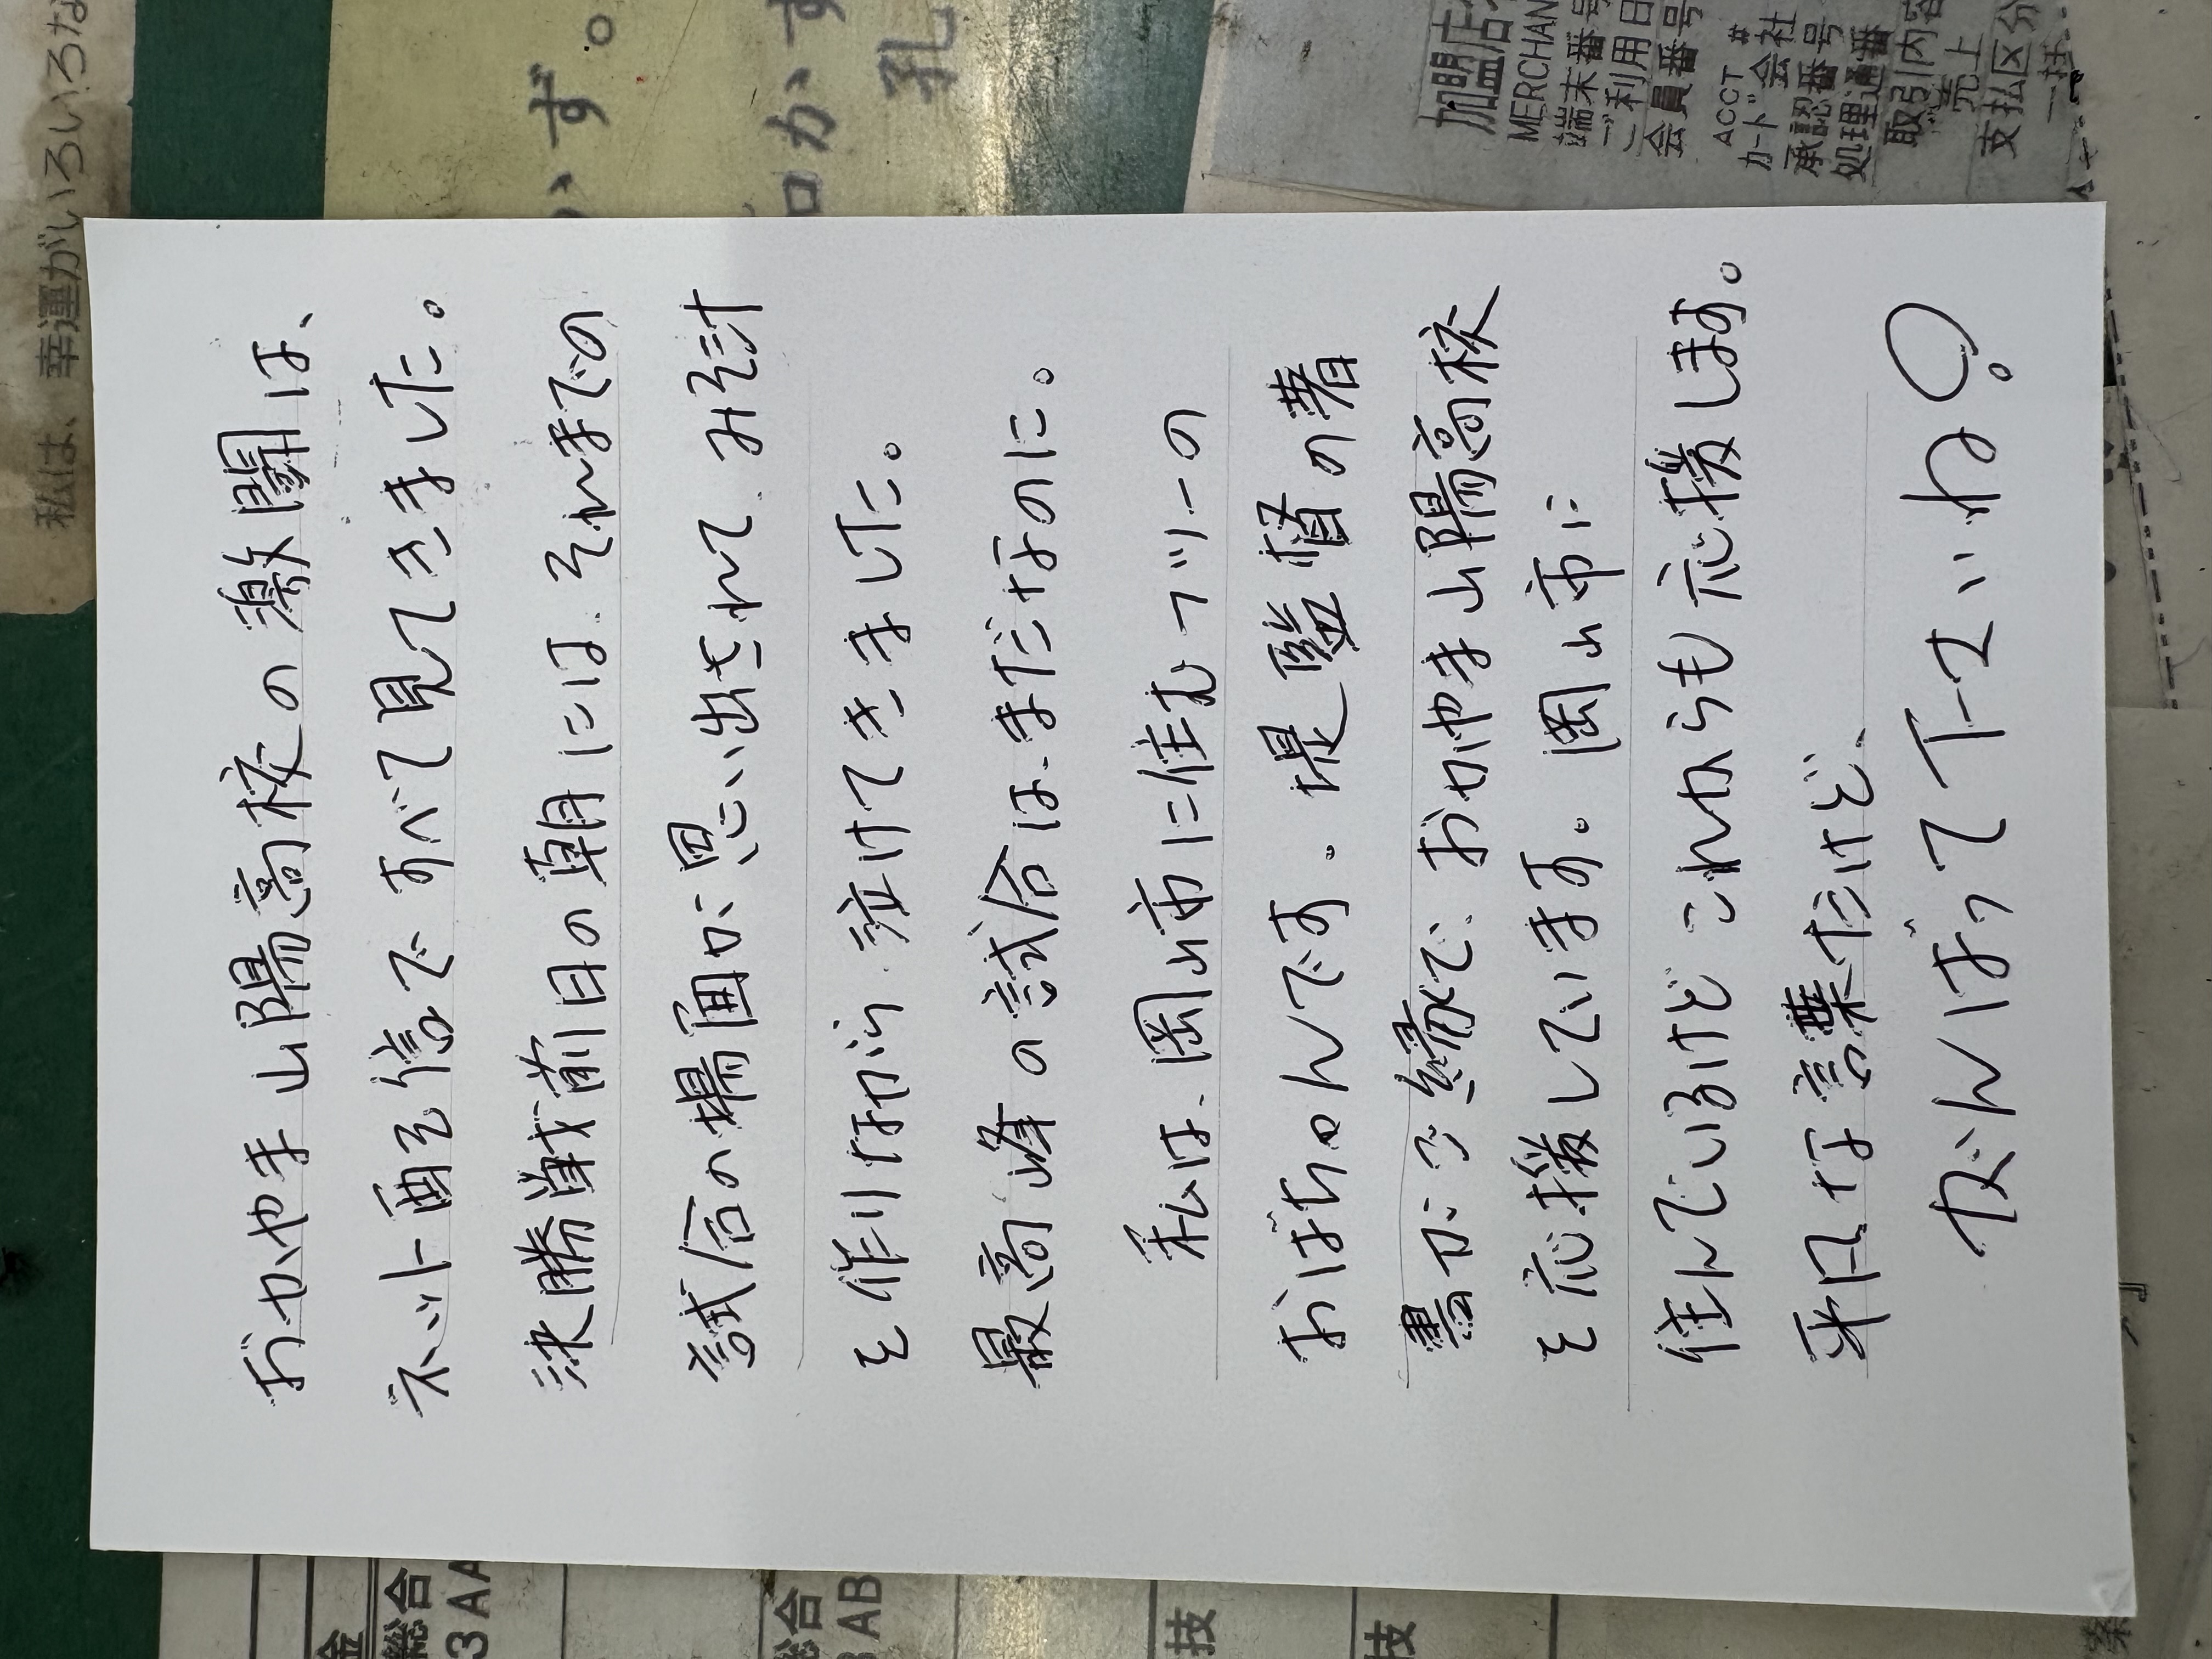 おかやま山陽高校の激闘は、
ネット配信ですべて見てきました。
決勝戦前日の朝には、それまでの
試合の場面が思い出されて、みそ汁
を作りながら、泣けてきました。
最高峰の試合は、まだなのに。
私は、岡山市に住むフツーの
おばちゃんです。堤監督の著
書がご縁で、おかやま山陽高校
を応援しています。岡山市に
住んでいるけどこれからも応援します。
平凡な言葉だけど、
がんばって下さいね。
私は、幸運がいろいろな
加盟店
MERCHAN
端末番号
ご利用日
会員番号
ACCT #
カード会社
承認番号
処理通番
取引内容
売上
支払区分
一括
総合
3AA
総合
3AB
技
技